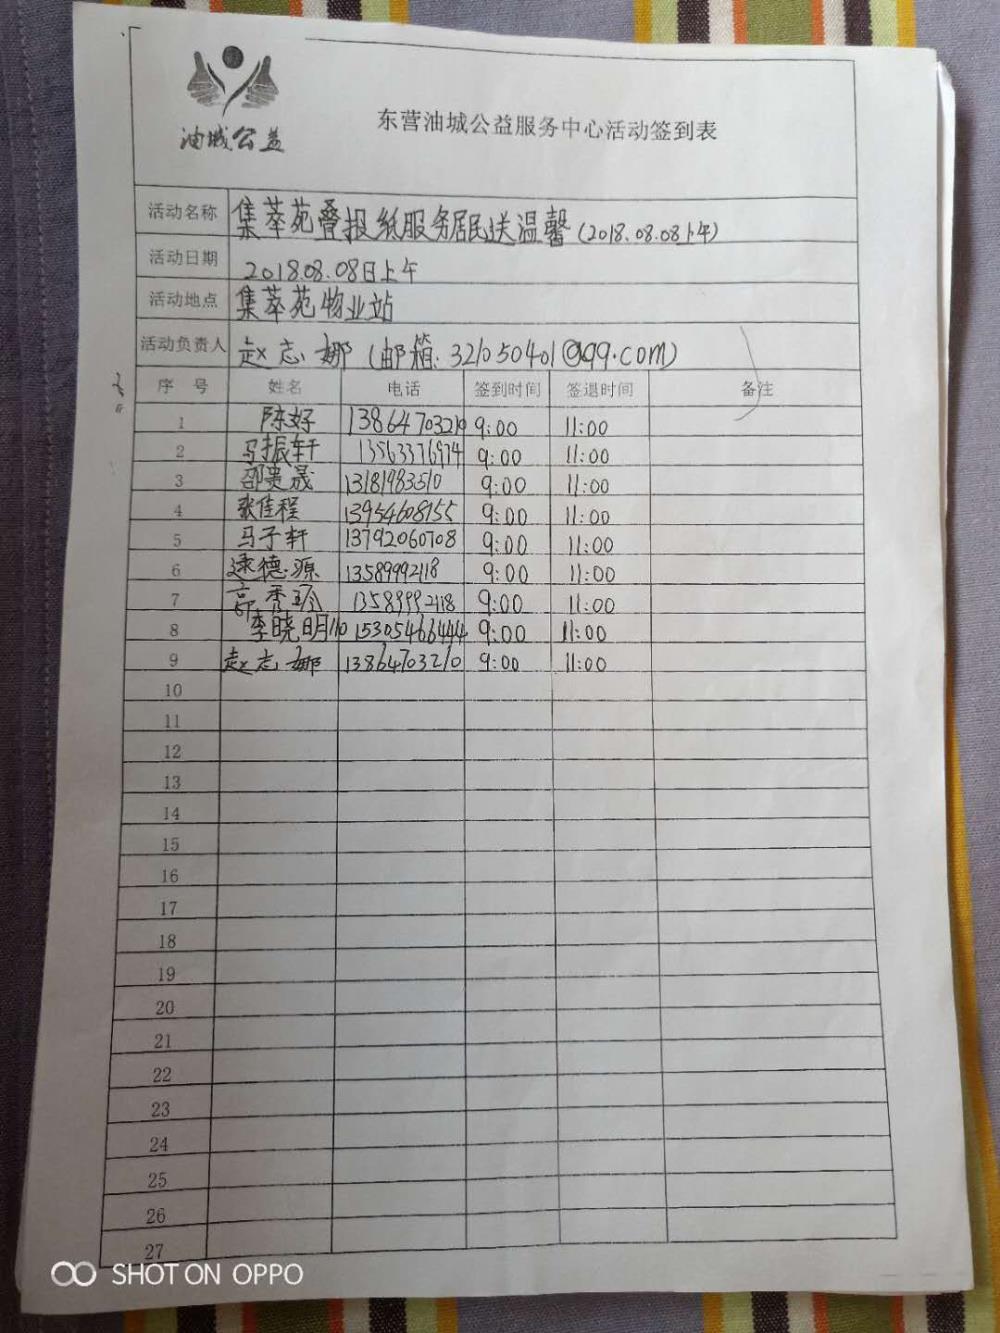 油城公益
东营油城公益服务中心活动签到表
活动名称 集萃苑叠报纸服务居民送温馨(2018.08.08上午)
活动日期 2018.08.08日上午
活动地点 集萃苑物业站
活动负责人 赵志娜(邮箱:321050401@qq.com)
序号 姓名 电话 签到时间 签退时间 备注
1 陈好 13864703210 9:00 11:00
2 马振轩 13563376974 9:00 11:00
3 邵贵晟 13181983510 9:00 11:00
4 张佳程 13954608155 9:00 11:00
5 马子轩 13792060708 9:00 11:00
6 逯德源 13589992118 9:00 11:00
7 高秀玲 13589992118 9:00 11:00
8 李晓明 15305466444 9:00 11:00
9 赵志娜 13864703210 9:00 11:00
10
11
12
13
14
15
16
17
18
19
20
21
22
23
24
25
26
27
SHOT ON OPPO